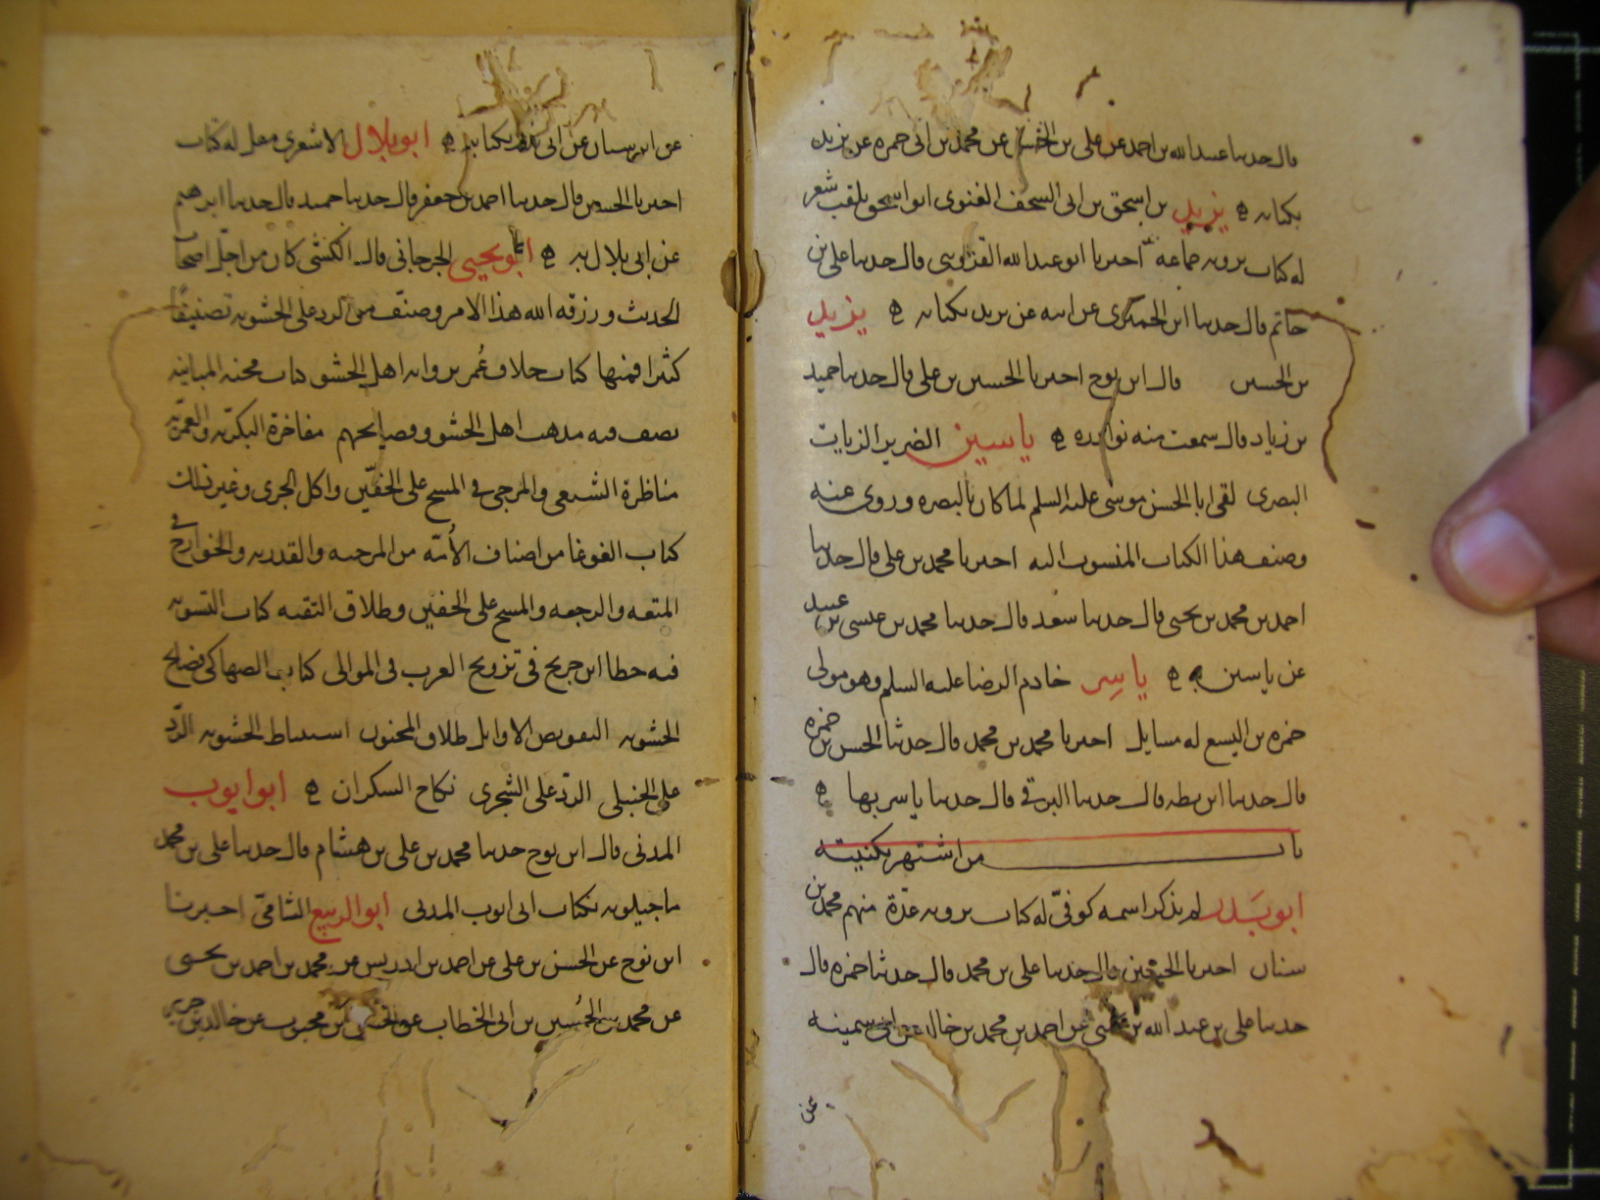 قال حدثنا عبيد الله بن احمد عن على بن الحسن عن محمد بن ابى حمزه عن يزيد
بكتابه ه يزيد بن اسحق بن ابى السخف الغنوى ابو اسحق يلقب شعر
له كتاب يرويه جماعة اخبرنا ابو عبد الله القزوينى قال حدثنا على بن
حاتم قال حدثنا ابن الحميرى عن ابيه عن يزيد بكتابه ه يزيد
بن الحسين قال ابن نوح اخبرنا الحسين بن على قال حدثنا حميد
بن زياد قال سمعت منه نوادره ه ياسين الضرير الزيات
البصرى لقى ابا الحسن موسى عليه السلم لما كان بالبصره وروى عنه
وصنف هذا الكتاب المنسوب اليه اخبرنا محمد بن على قال حدثنا
احمد بن محمد بن يحيى قال حدثنا سعد قال حدثنا محمد بن عيسى بن عبيد
عن ياسين به ه ياسر خادم الرضا عليه السلم وهو مولى
حمزه بن اليسع له مسايل اخبرنا محمد بن محمد قال حدثنا الحسن بن حمزه
قال حدثنا ابن بطه قال حدثنا البرقى قال حدثنا ياسر بها ه
باب من اشتهر بكنيته
ابو بدر لم يذكر اسمه كوفىّ له كتاب يرويه عدّة منهم محمد بن
سنان اخبرنا الحسين قال حدثنا على بن محمد قال حدثنا حمزه قال
حدثنا على بن عبد الله بن يحيى عن احمد بن محمد بن خالد عن ابى سمينه
عن
عن ابن سنان عن ابى بدر بكتابه ه ابو بلال الاشعرى مقل له كتاب
اخبرنا الحسين قال حدثنا احمد بن جعفر قال حدثنا حميد قال حدثنا ابرهيم
عن ابى بلال به ه ابو يحيى الجرجانى قال الكشى كان من اجلّ اصحاب
الحديث ورزقه الله هذا الامر وصنّف من الرد على الحشويه تصنيفًا
كثيرا فمنها كتاب خلاف عُمر برواية اهل الحشو كتاب محنه المباينه
يصف فيه مذهب اهل الحشو وفضايحهم مفاخرة البكريّه والعمريّه
مناظرة الشيعى والمرجى فى المسح على الخفّين واكل الجرى وغير ذلك
كتاب الغوغا من اصناف الاُمّه من المرجيه والقدريه والخوارج فى
المتعه والرجعه والمسح على الخفين وطلاق التقيه كتاب التسويه
فيه خطا ابن جريج فى تزويج العرب فى الموالى كتاب الصهاكى فضايح
الحشويه التفويض الاوايل طلاق المجنون استنباط الحشويه الرّد
على الحنبلى الردّ على الشجرى نكاح السكران ه ابو ايوب
المدنى قال ابن نوح حدثنا محمد بن على بن هشام قال حدثنا على بن محمد
ماجيلويه بكتاب ابى ايوب المدنى ابو الربيع الشامّى اخبرنا
ابن نوح عن الحسن بن على عن احمد بن ادريس عن محمد بن احمد بن يحيى
عن محمد بن الحُسين بن ابى الخطاب عن الحسن بن محبوب عن خالد بن جرير